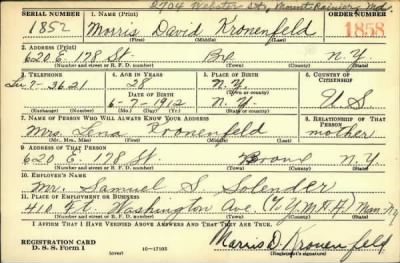 2704 Webster St., Mount Rainier, Md.
SERIAL NUMBER 1. NAME (Print) ORDER NUMBER
1852 Morris David Kronenfeld 1858
(First) (Middle) (Last)
2. ADDRESS (Print)
620 E. 178 St. Bx N.Y.
(Number and street or R. F. D. number) (Town) (County) (State)
3. TELEPHONE 4. AGE IN YEARS 5. PLACE OF BIRTH 6. COUNTRY OF CITIZENSHIP
7-3621 28 N.Y.
DATE OF BIRTH (Town or county)
6-7-1912 N.Y. U S
(Exchange) (Number) (Mo.) (Day) (Yr.) (State or country)
7. NAME OF PERSON WHO WILL ALWAYS KNOW YOUR ADDRESS 8. RELATIONSHIP OF THAT PERSON
Mrs. Lena Kronenfeld mother
(Mr., Mrs., Miss) (First) (Middle) (Last)
9. ADDRESS OF THAT PERSON
620 E. 178 St. Bronx N.Y.
(Number and street or R. F. D. number) (Town) (County) (State)
10. EMPLOYER'S NAME
Mr. Samuel S. Solender
11. PLACE OF EMPLOYMENT OR BUSINESS
410 Ft. Washington Ave. (Y.M.H.A) Man. Ny
(Number and street or R. F. D. number) (Town) (County) (State)
I AFFIRM THAT I HAVE VERIFIED ABOVE ANSWERS AND THAT THEY ARE TRUE.
REGISTRATION CARD
D. S. S. Form 1 (over) 16—17105 Morris D. Kronenfeld